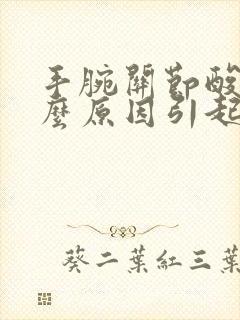 手腕關節酸
麼原因引起
葵二葉紅三葉